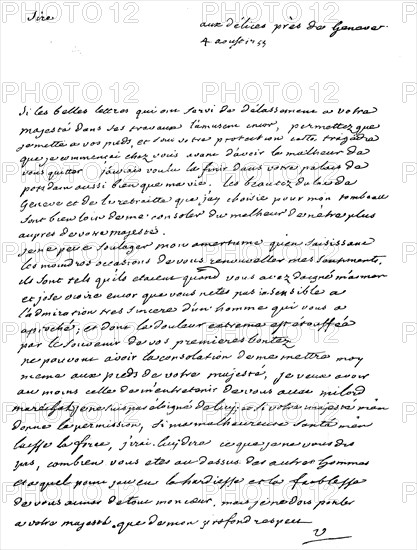 Sire
aux délices près de Geneve
4 aoust 1755
si les belles lettres qui ont servi de délassement a votre
majesté dans ses travaux l'amusent encor, permettez que
je mette a vos pieds, et sous votre protection cette tragédie
que je commençai chez vous avant d'avoir le malheur de
vous quitter. j'aurais voulu la finir dans votre palais de
potsdam aussi bien que ma vie. les beautez du lac de
Geneve et de la retraitte que j'ay choisie pour mon tombeau
sont bien loin de me consoler du malheur de n'être plus
aupres de votre majesté.
je ne peux soulager mon amertume qu'en saisissant
les moindres occasions de vous renouveller mes sentiments.
ils sont tels qu'ils etaient quand vous avez daigné m'aimer
et j'ose croire encor que vous n'etes pas insensible a
l'admiration tres sincere d'un homme qui vous a
aproché; et dont la douleur extreme est étouffée
par le souvenir de vos premieres bontez
ne pouvant avoir la consolation de me mettre moy
meme aux pieds de votre majesté, je veux avoir
au moins celle de m'entretenir de vous avec milord
maréchal, je ne suis pas éloigné de luy, et si votre majesté m'en
donne la permission, si ma malheureuse santé m'en
laisse la force, j'irai luy dire ce que je ne vous dis
pas, combien vous etes au dessus des autres hommes
et a quel point j'ay eu la hardiesse et la faiblesse
de vous aimer de tout mon cœur. mais je ne dois parler
a votre majesté que de mon profond respect
V
PHOTO12